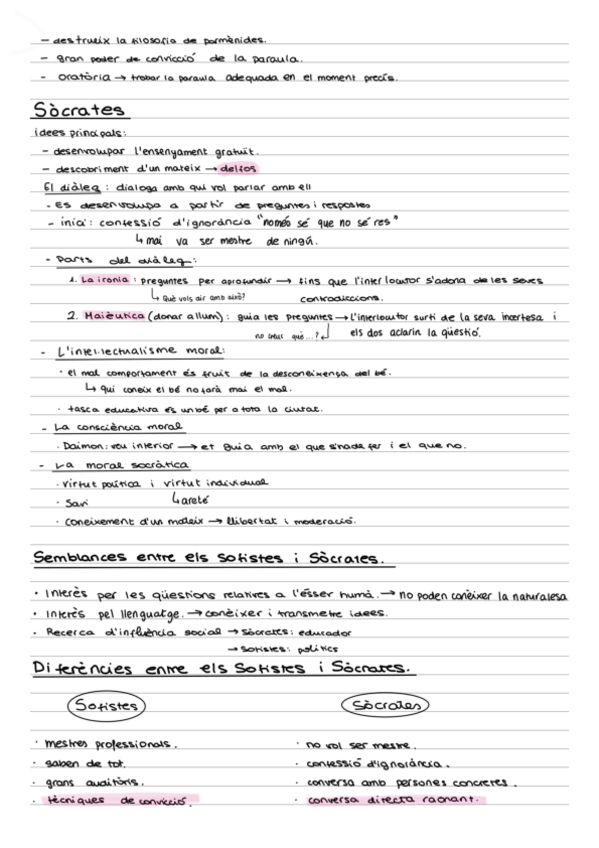 - destrueix la filosofia de parmènides.
- gran poder de convicció de la paraula.
- oratòria → trobar la paraula adequada en el moment precís.
Sòcrates
idees principals:
- desenvolupar l'ensenyament gratuït.
- descobriment d'un mateix → delfos
El diàleg: dialoga amb qui vol parlar amb ell
- Es desenvolupa a partir de preguntes i respostes
- inici: confessió d'ignorància "només sé que no sé res"
↳ mai va ser mestre de ningú.
- Parts del diàleg:
1. La ironia: preguntes per aprofundir → fins que l'interlocutor s'adona de les seves
↳ Què vols dir amb això? contradiccions.
2. Maièutica (donar a llum): guia les preguntes → l'interlocutor surti de la seva incertesa i
no creus que...? ↲ els dos aclarin la qüestió.
- L'intel·lectualisme moral:
· el mal comportament és fruit de la desconeixença del bé.
↳ qui coneix el bé no farà mai el mal.
· tasca educativa és un bé per a tota la ciutat.
- La consciència moral
· Daimon: veu interior → et guia amb el que s'ha de fer i el que no.
- La moral socràtica
· virtut política i virtut individual
· Savi ↳ areté
· coneixement d'un mateix → llibertat i moderació.
Semblances entre els Sofistes i Sòcrates.
· Interès per les qüestions relatives a l'ésser humà. → no poden conèixer la naturalesa
· Interès pel llenguatge. → conèixer i transmetre idees.
· Recerca d'influència social → Sòcrates: educador
→ Sofistes: polítics
Diferències entre els Sofistes i Sòcrates.
Sofistes Sòcrates
· mestres professionals. · no vol ser mestre.
· saben de tot. · confessió d'ignorància.
· grans auditoris. · conversa amb persones concretes.
· tècniques de convicció. · conversa directa raonant.